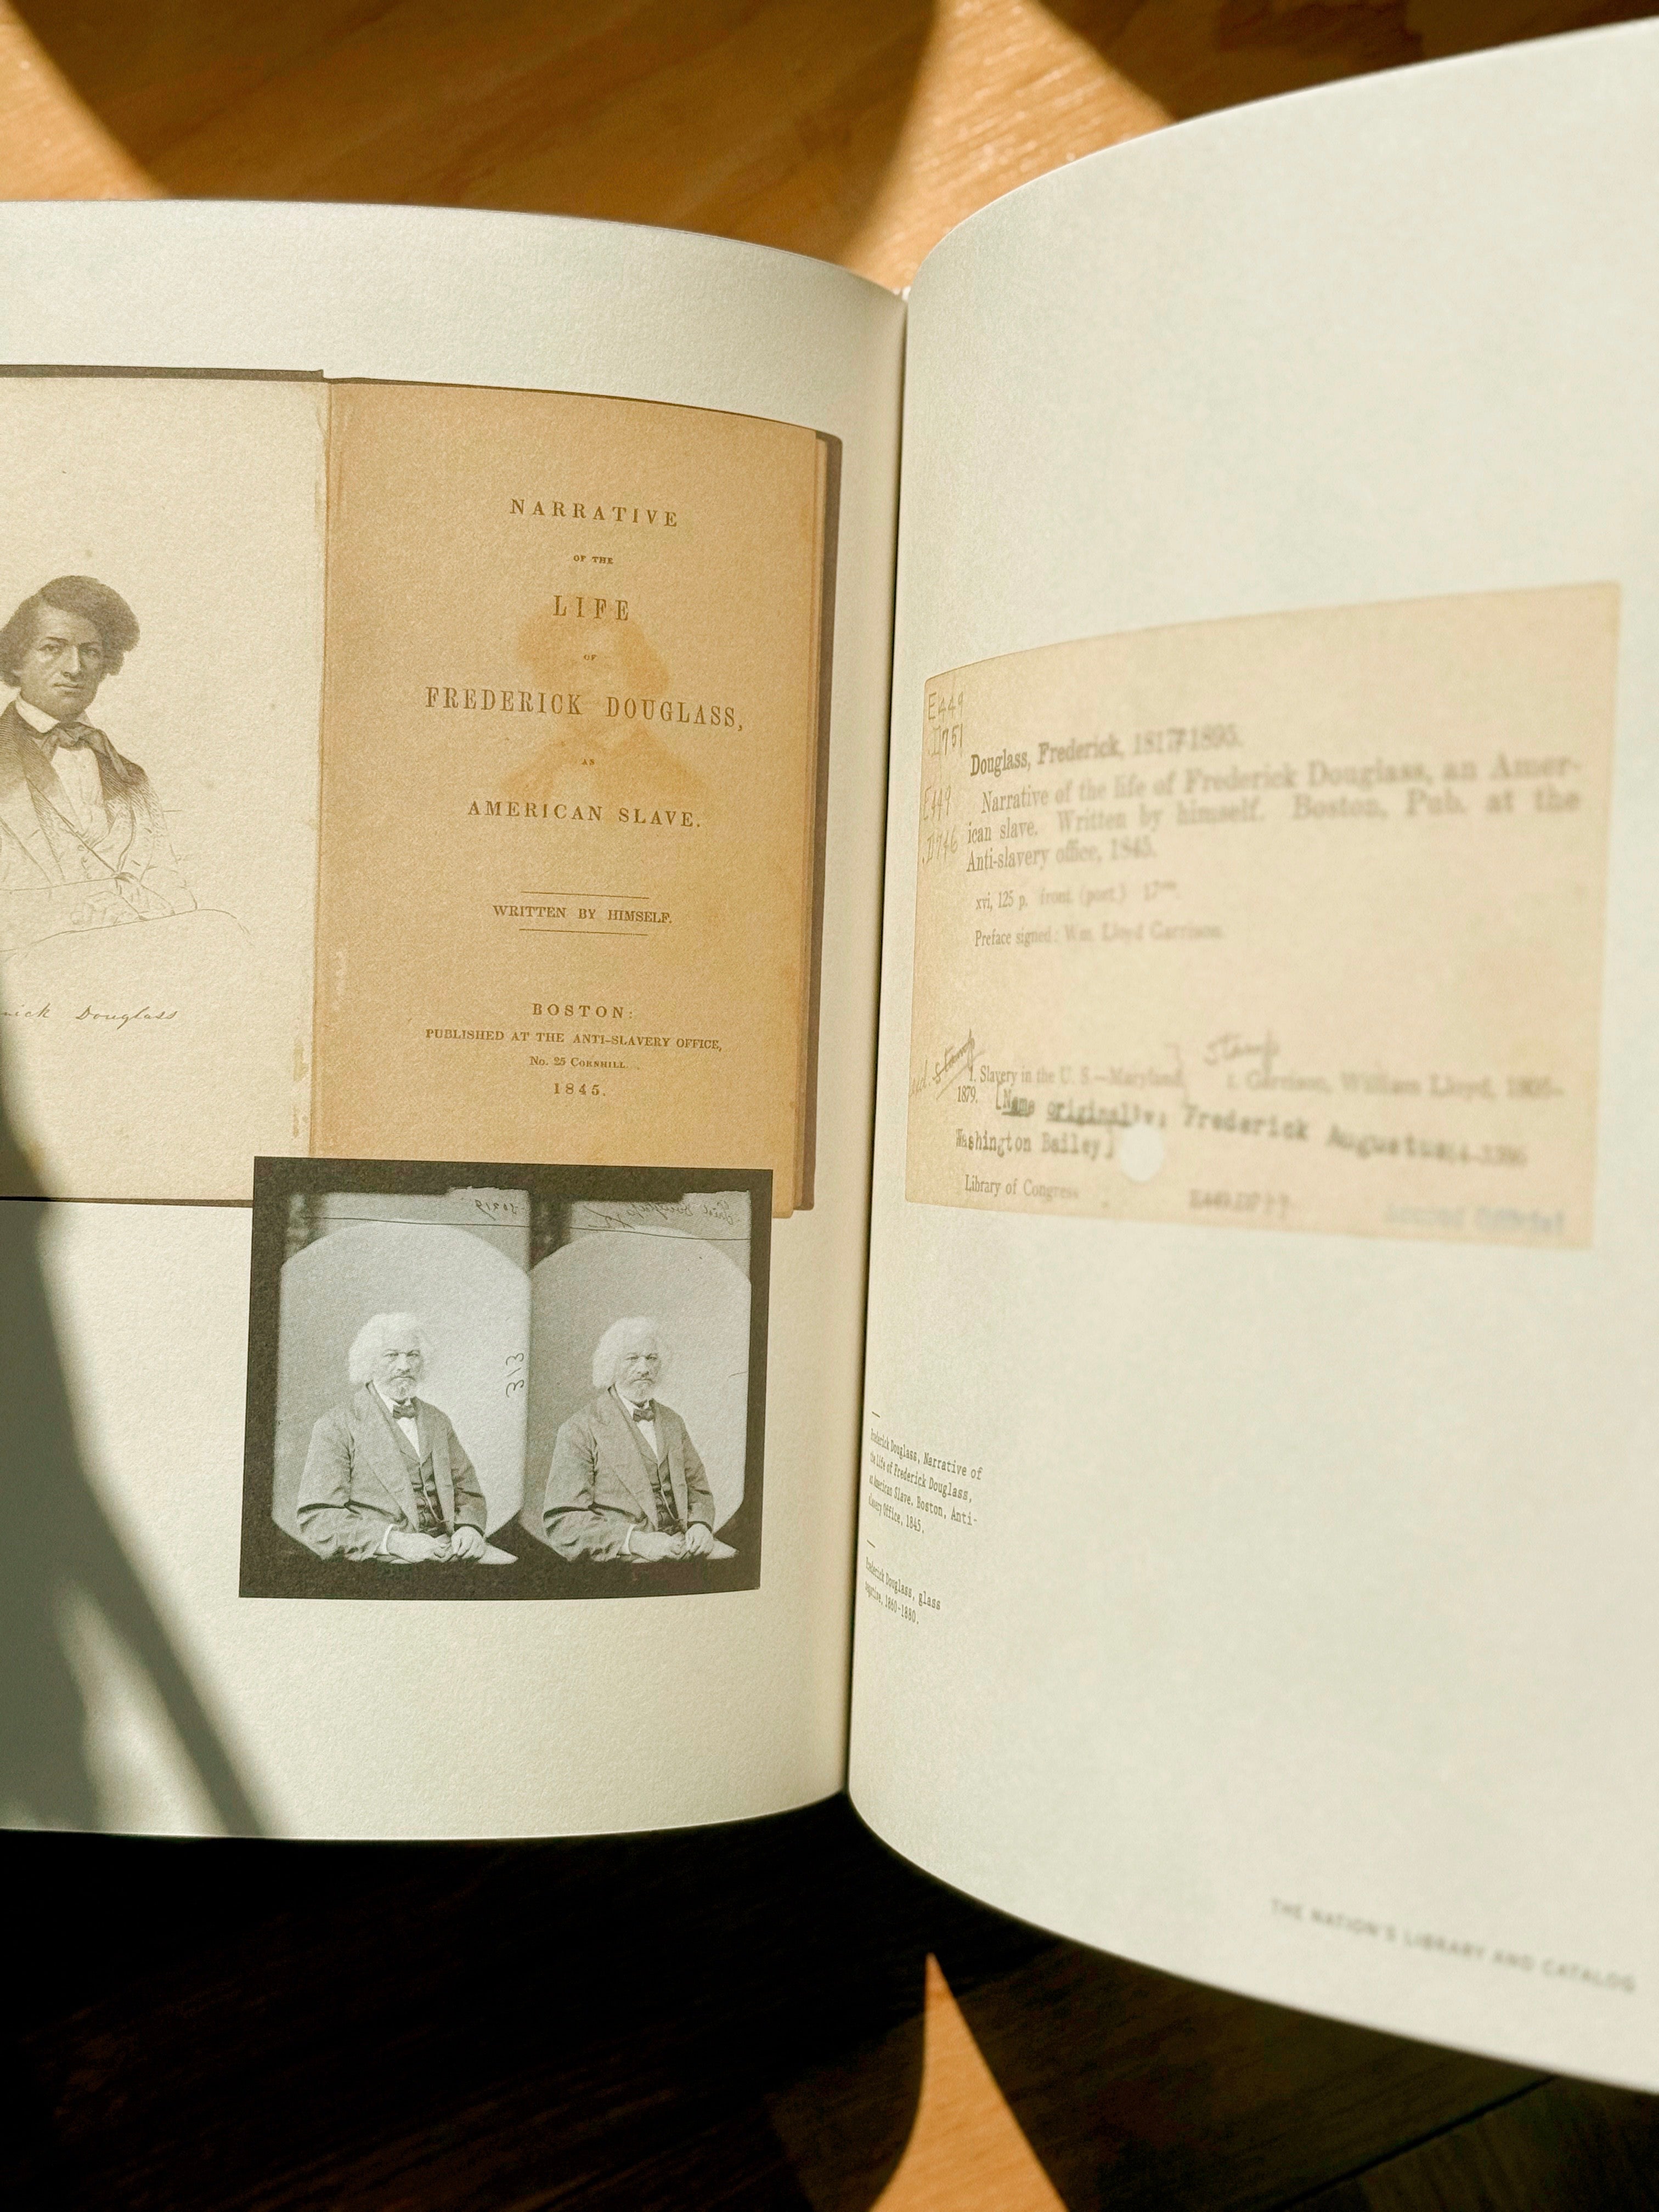 NARRATIVE
OF THE
LIFE
OF
FREDERICK DOUGLASS,
AN
AMERICAN SLAVE.
WRITTEN BY HIMSELF.
BOSTON:
PUBLISHED AT THE ANTI-SLAVERY OFFICE,
No. 25 CORNHILL.
1845.
Douglass
313
E449
.D751
E449
.D746
Douglass, Frederick, 1895.
Narrative of the life of Frederick Douglass, an Amer-
ican slave. Written by himself. Boston, Pub. at the
Anti-slavery office, 1845.
xvi, 125 p. front. (port.) 17
Preface signed: Wm. Lloyd Garrison.
Stamp
1. Slavery in the U. S.—Maryland. I. Garrison, William Lloyd, 1805-
1879. [Name originally: Frederick Augustus
Washington Bailey]
Library of Congress
Frederick Douglass, Narrative of
the life of Frederick Douglass,
an American Slave. Boston, Anti-
slavery Office, 1845.
Frederick Douglass, glass
negative, 1860-1880.
THE NATION'S LIBRARY AND CATALOG